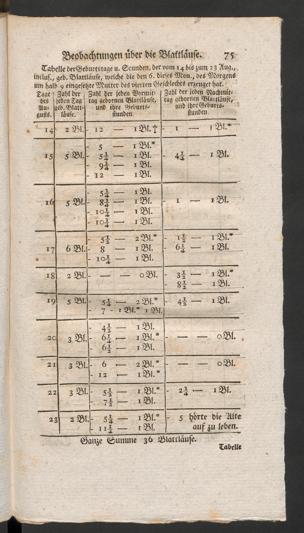 Beobachtungen über die Blattläuse. 75
Tabelle der Geburtstage u. Stunden, der vom 14 bis zum 23 Aug.,
inclus., geb. Blattläuse, welche die den 6. dieses Mon., des Morgens
um halb 9 eingesetzte Mutter des vierten Geschlechts erzeuget hat.
Tage des Au- gusts. Zahl der jeden Tag geb. Blatt- läuse. Zahl der jeden Vormit- tag gebornen Blattläuse, und ihre Geburts- stunden. Zahl der jeden Nachmit- tag gebornen Blattläuse, und ihre Geburts- stunden
14 2 Bl. - 12 — 1 Bl.† - 1 — 1 Bl.*
5 — 1 Bl.*
15 5 Bl. - 5¼ — 1 Bl. - 4¼ — 1 Bl.
9¼ — 1 Bl.
- 12 — 1 Bl.
5¼ — 1 Bl.
16 5 Bl. - 8¾ — 1 Bl. - 1 — 1 Bl.
10¼ — 1 Bl.
- 10¾ — 1 Bl.
5½ — 2 Bl.* - 1½ — 1 Bl.*
17 6 Bl. - 8 — 1 Bl. - 6¼ — 1 Bl.
- 10¾ — 1 Bl.
18 2 Bl. — — — 0 Bl. - 3½ — 1 Bl.*
8½ — 1 Bl.
19 5 Bl. 5¼ — 2 Bl.* - 4½ — 1 Bl.
- 7 - 1 Bl.* 1 Bl.
- 4½ — 1 Bl.
20 3 Bl. - 6¼ — 1 Bl.* - — — 0 Bl.
- 6½ — 1 Bl.
21 3 Bl. - 6 — 2 Bl.* - — — 0 Bl.
- 12 — 1 Bl.*
22 3 Bl. - 5½ — 1 Bl.* - 2¾ — 1 Bl.
7½ — 1 Bl.
23 2 Bl. - 5½ — 1 Bl.* - 5 hörte die Alte
11¼ — 1 Bl. auf zu leben.
Ganze Summe 36 Blattläuse.
Tabelle